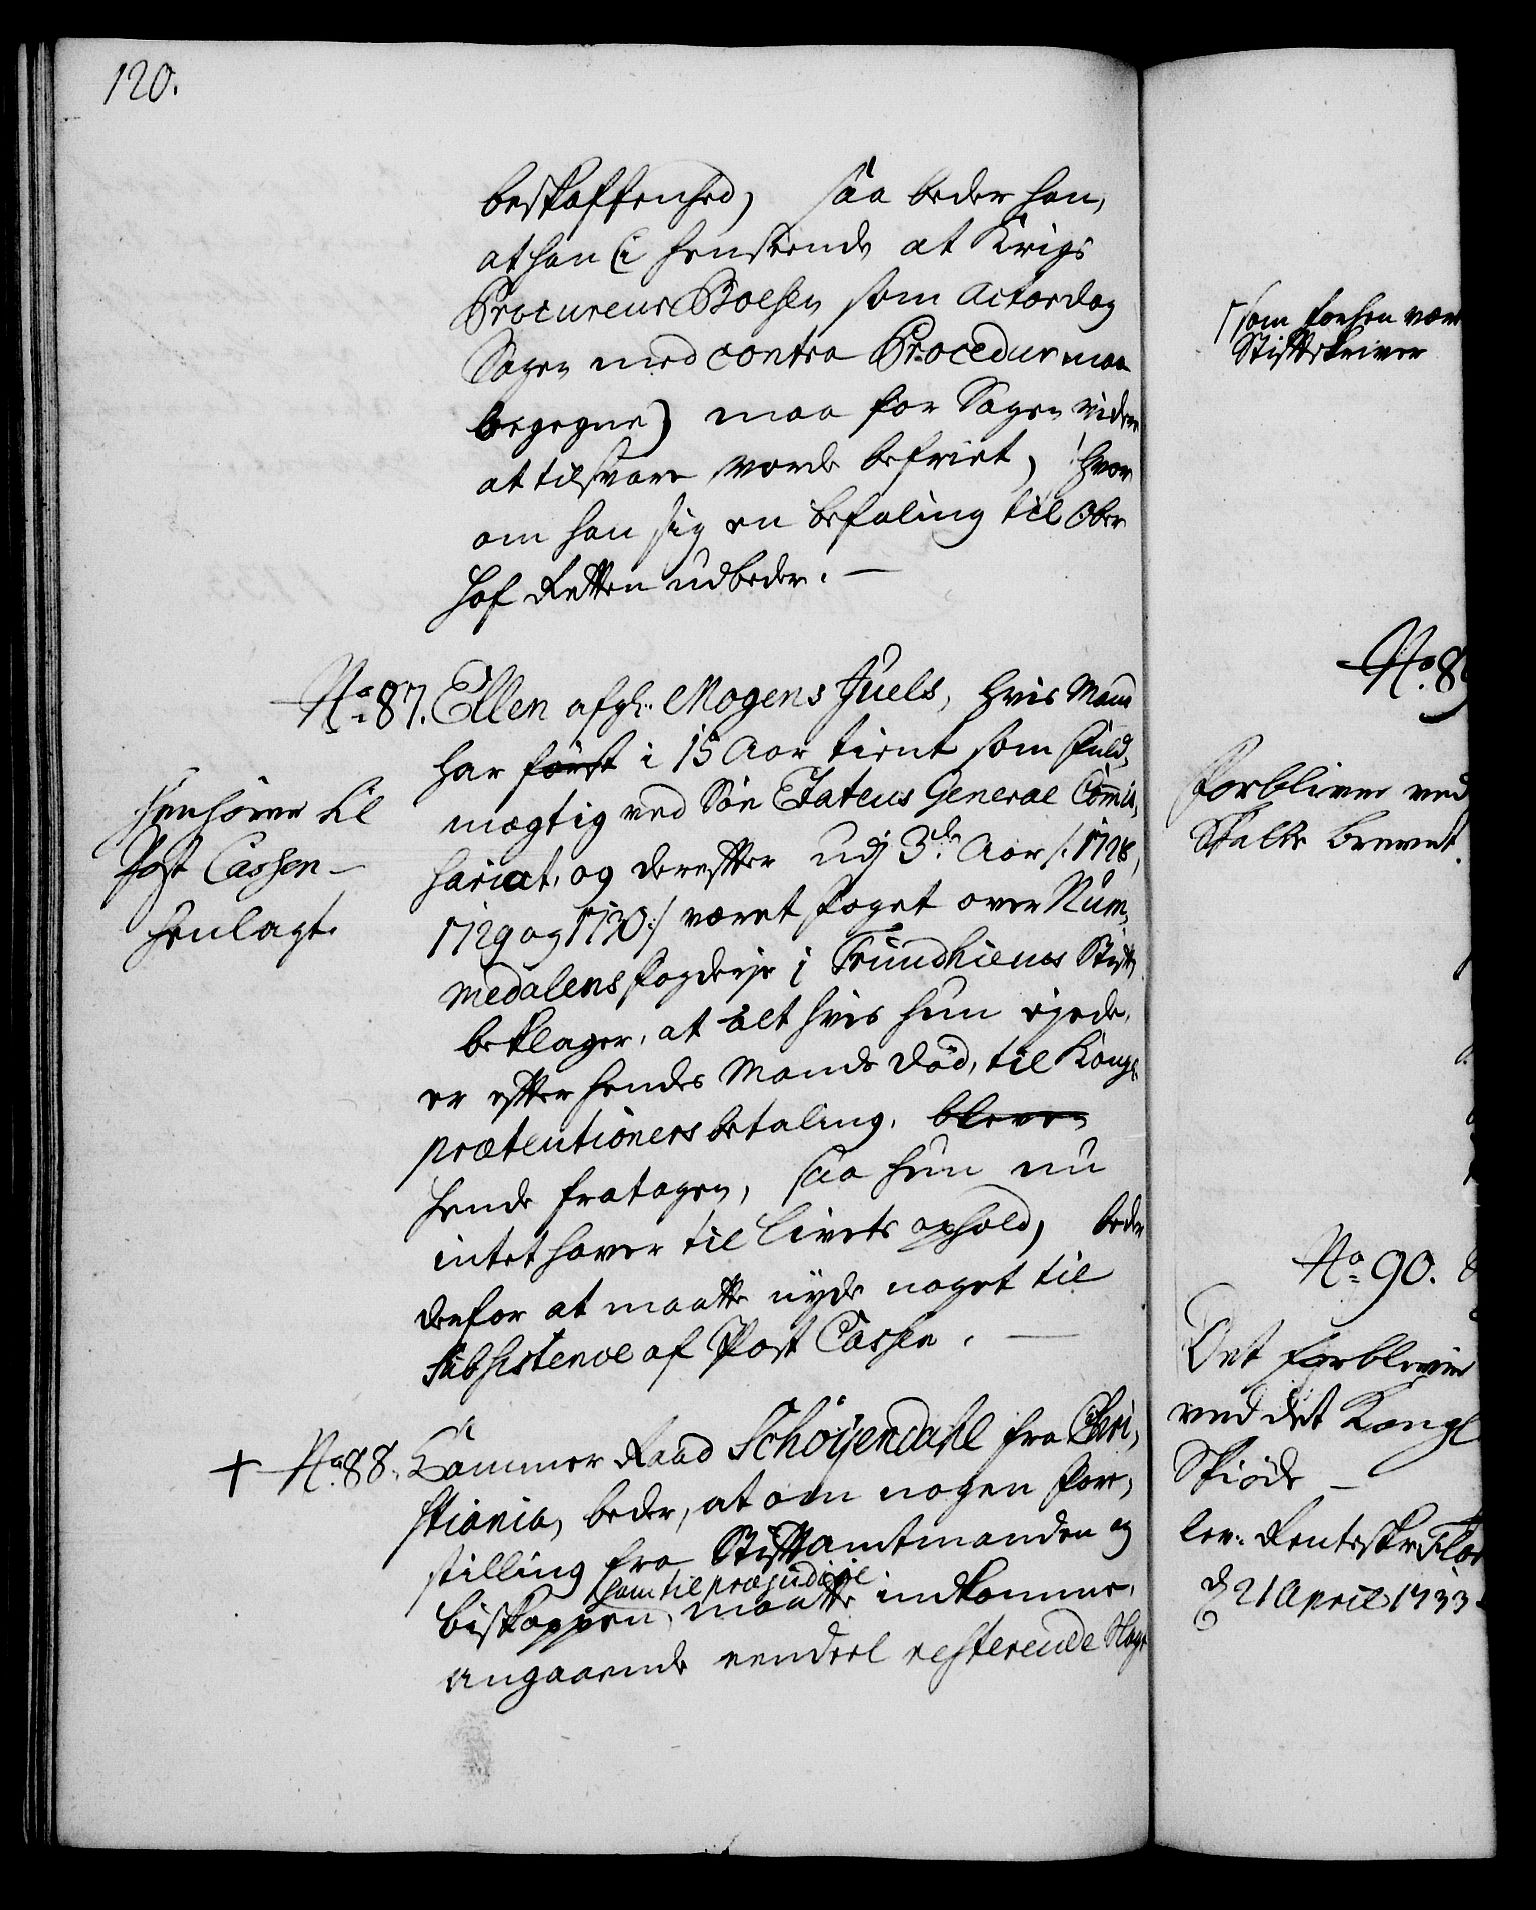 120.
beskaffenhed, saa beder han,
at han (i henseende at Krigs
Procureur Boesen som Actor dog
Sagen med contra Procedur maa
begegne) maa for Sagen videre
at tilsvare worde befriet, hvor
om han sig en befaling til Ober
Hof Retten udbeder. —
No 87. Ellen afgl. Mogens Juels, hvis Mand
har först i 15 Aar tient som Fuld,
mægtig ved Søe Etatens General Commis,
sariat, og derefter udj 3de Aar /: 1728,
1729 og 1730 :/ været Foget over Num,
medalens Fogderje i Trundhiems Stift,
beklager, at alt hvis hun ejede,
er efter hendes Mands Död, til Kongl.
prætentioners betaling, bleven
hende fratagen, saa hun nu
intet haver til livets ophold, beder
derfor at maatte nyde noget til
Subsistence af Post Cassen. —
Henhører til
Post Cassen —
henlagt.
+ No 88. Cammer Raad Schöyendahl fra Chri,
stiania, beder, at om nogen Fore,
stilling fra Stiftamtmanden og
ham til præjudice
biskoppen, maatte indkomme,
angaaende eendeel resterende
som forhen være
Stiftskriver
No. 89
Forbliver ved
Skatte brevet.
No 90.
Det forbliver
ved det Kongl
Skiöde —
lev: Renteskr:
d 21 April 1733